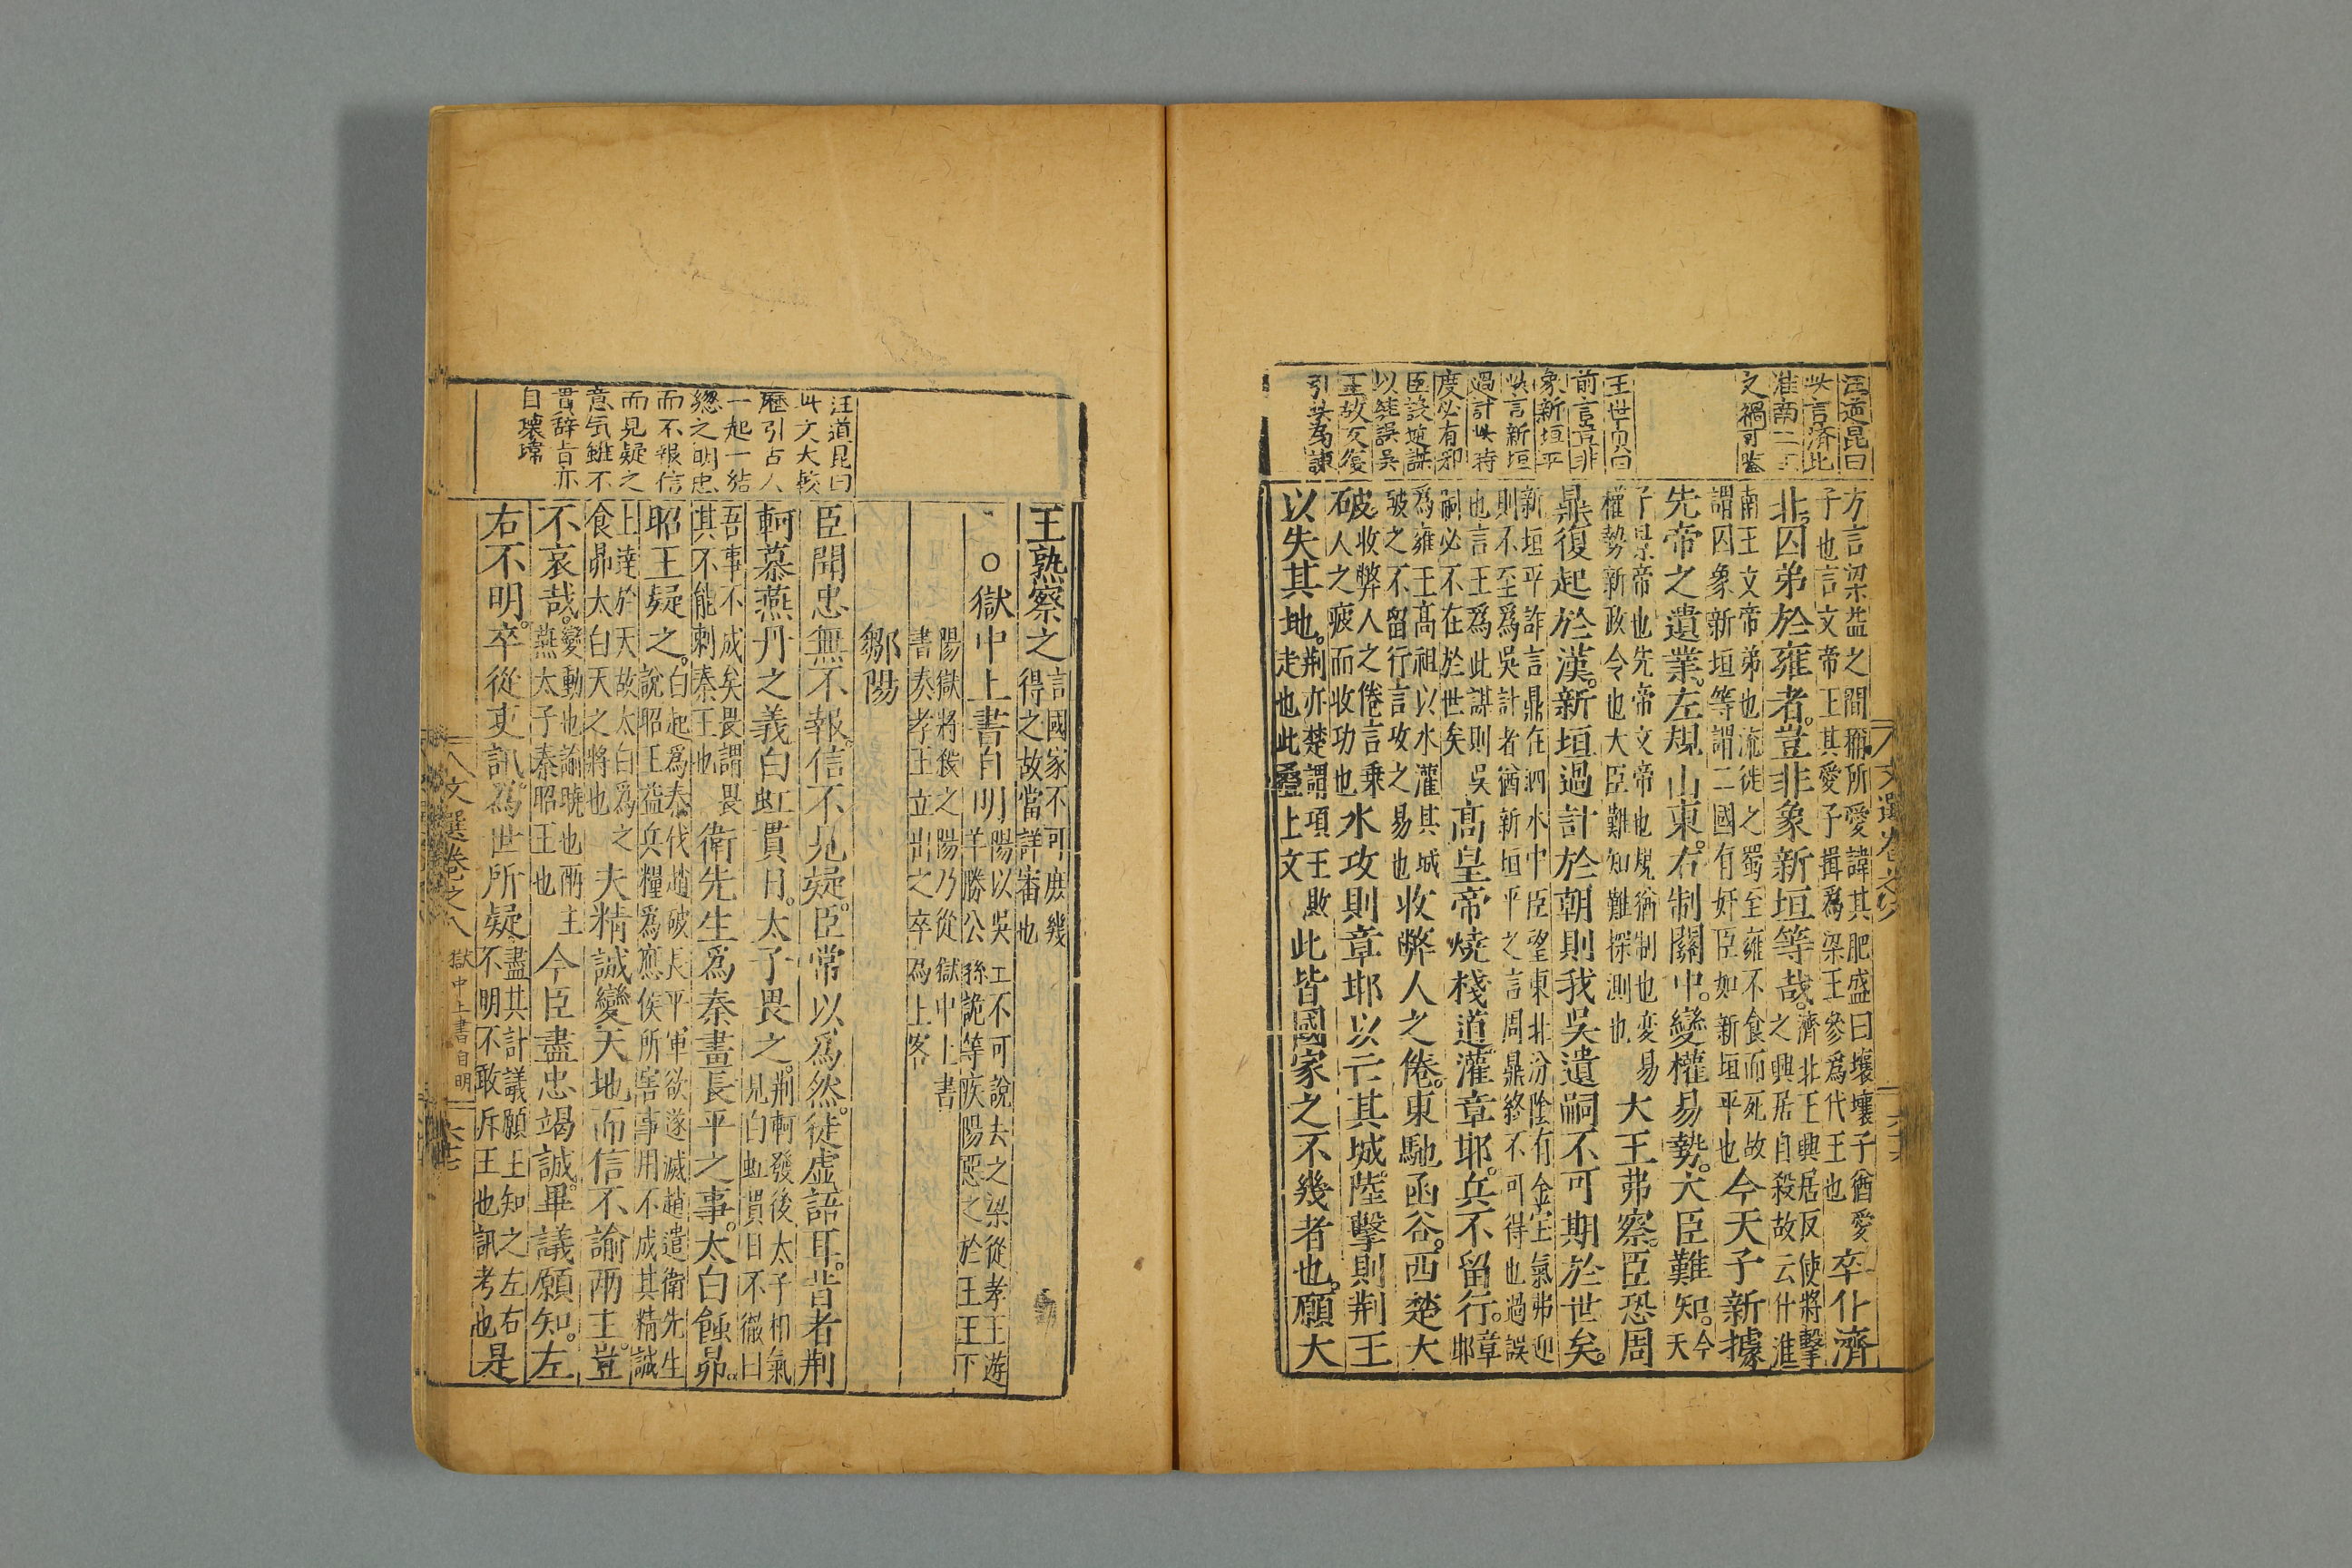 汪道昆曰
此言濟北
淮南二王
之禍可鑒
王世貞曰
前言豈非
象新垣平
此言新垣
過計此待
度必有邪
臣設逆謀
以絓誤吳
王故又復
引此爲諫
方言梁益之間禰所愛諱其肥盛曰壤壤子猶愛
子也言文帝王其愛子揖爲梁王參爲代王也
卒仆濟
北囚弟於雍者。豈非象新垣等哉。
濟北王興居反使將擊
之興居自殺故云仆淮
南王文帝弟也流徙之蜀至雍不食而死故
謂囚象新垣等謂二國有奸臣如新垣平也
今天子新據
先帝之遺業。左規山東。右制關中。變權易勢。大臣難知。
今
天
子景帝也先帝文帝也規猶制也変易
權勢新政令也大臣難知難探測也
大王弗察。臣恐周
鼎復起於漢。新垣過計於朝則我吳遺嗣不可期於世矣。
新垣平詐言鼎在泗水中臣望東北汾陰有金宝氣弗迎
則不至爲吳計者猶新垣平之言周鼎終不可得也過誤
也言王爲此謀則吳
嗣必不在於世矣
高皇帝燒棧道灌章邯。兵不留行。
章
邯
爲雍王高祖以水灌其城
破之不留行言攻之易也
收弊人之倦。東馳函谷。西楚大
破
收弊人之倦言乘
人之疲而收功也
水攻則章邯以亡其城。陸擊則荆王
以失其地。
荆亦楚謂項王敗
走也此疊上文
此皆國家之不幾者也。願大
文選卷之八
六十六
王熟察之
言國家不可庶幾
得之故當詳審也
○獄中上書自明
陽以吳王不可說去之梁從孝王遊
羊勝公孫詭等疾陽惡之於王王下
陽獄將殺之陽乃從獄中上書
書奏孝王立出之卒爲上客
鄒陽
汪道昆曰
此文大較
歷引古人
一起一結
總之明忠
而不報信
而見疑之
意气雖不
貫辭旨亦
自瓌瑋
臣聞忠無不報。信不見疑。臣常以爲然。徒虚語耳。昔者荆
軻慕燕丹之義白虹貫日。太子畏之。
荆軻發後太子相氣
見白虹貫日不徹曰
吾事不成矣畏謂畏
其不能刺秦王也
衛先生爲秦畫長平之事。太白蝕昴。
昭王疑之。
白起爲秦伐趙破長平軍欲遂滅趙遣衛先生
說昭王益兵糧爲應侯所害事用不成其精誠
上達於天故太白爲之
食昴太白天之將也
夫精誠變天地而信不諭兩主。豈
不哀哉。
變動也諭曉也兩主
燕太子秦昭王也
今臣盡忠竭誠。畢議願知。左
右不明。卒從吏訊。爲世所疑
盡其計議願王知之左右
不明不敢斥王也訊考也
是
文選卷之八
獄中上書自明
六十七